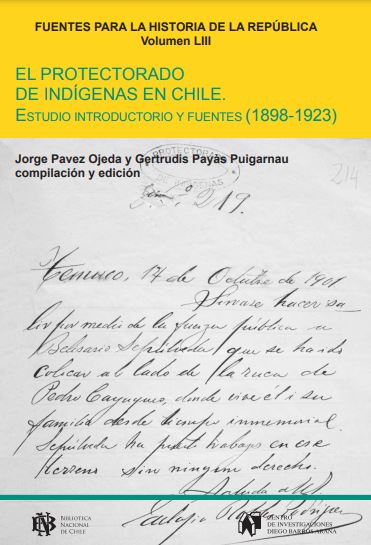 FUENTES PARA LA HISTORIA DE LA REPÚBLICA
Volumen LIII
EL PROTECTORADO
DE INDÍGENAS EN CHILE.
ESTUDIO INTRODUCTORIO Y FUENTES (1898-1923)
Jorge Pavez Ojeda y Gertrudis Payàs Puigarnau
compilación y edición
PROTECTORADO
DE INDÍGENAS
214
219.
Temuco, 17 de Octubre de 1901
Sírvase hacer sa
lir por medio de la fuerza pública a
Belisario Sepúlveda que se ha ido
colocar al lado de la ruca de
Pedro Cayuqueo, donde vive él i su
familia desde tiempo inmemorial.
Sepúlveda ha puesto trabajo en ese
terreno sin ningun derecho.
Saluda a Ud.
Eulojio
BN
BIBLIOTECA
NACIONAL
DE CHILE
CENTRO
DE INVESTIGACIONES
DIEGO BARROS ARANA